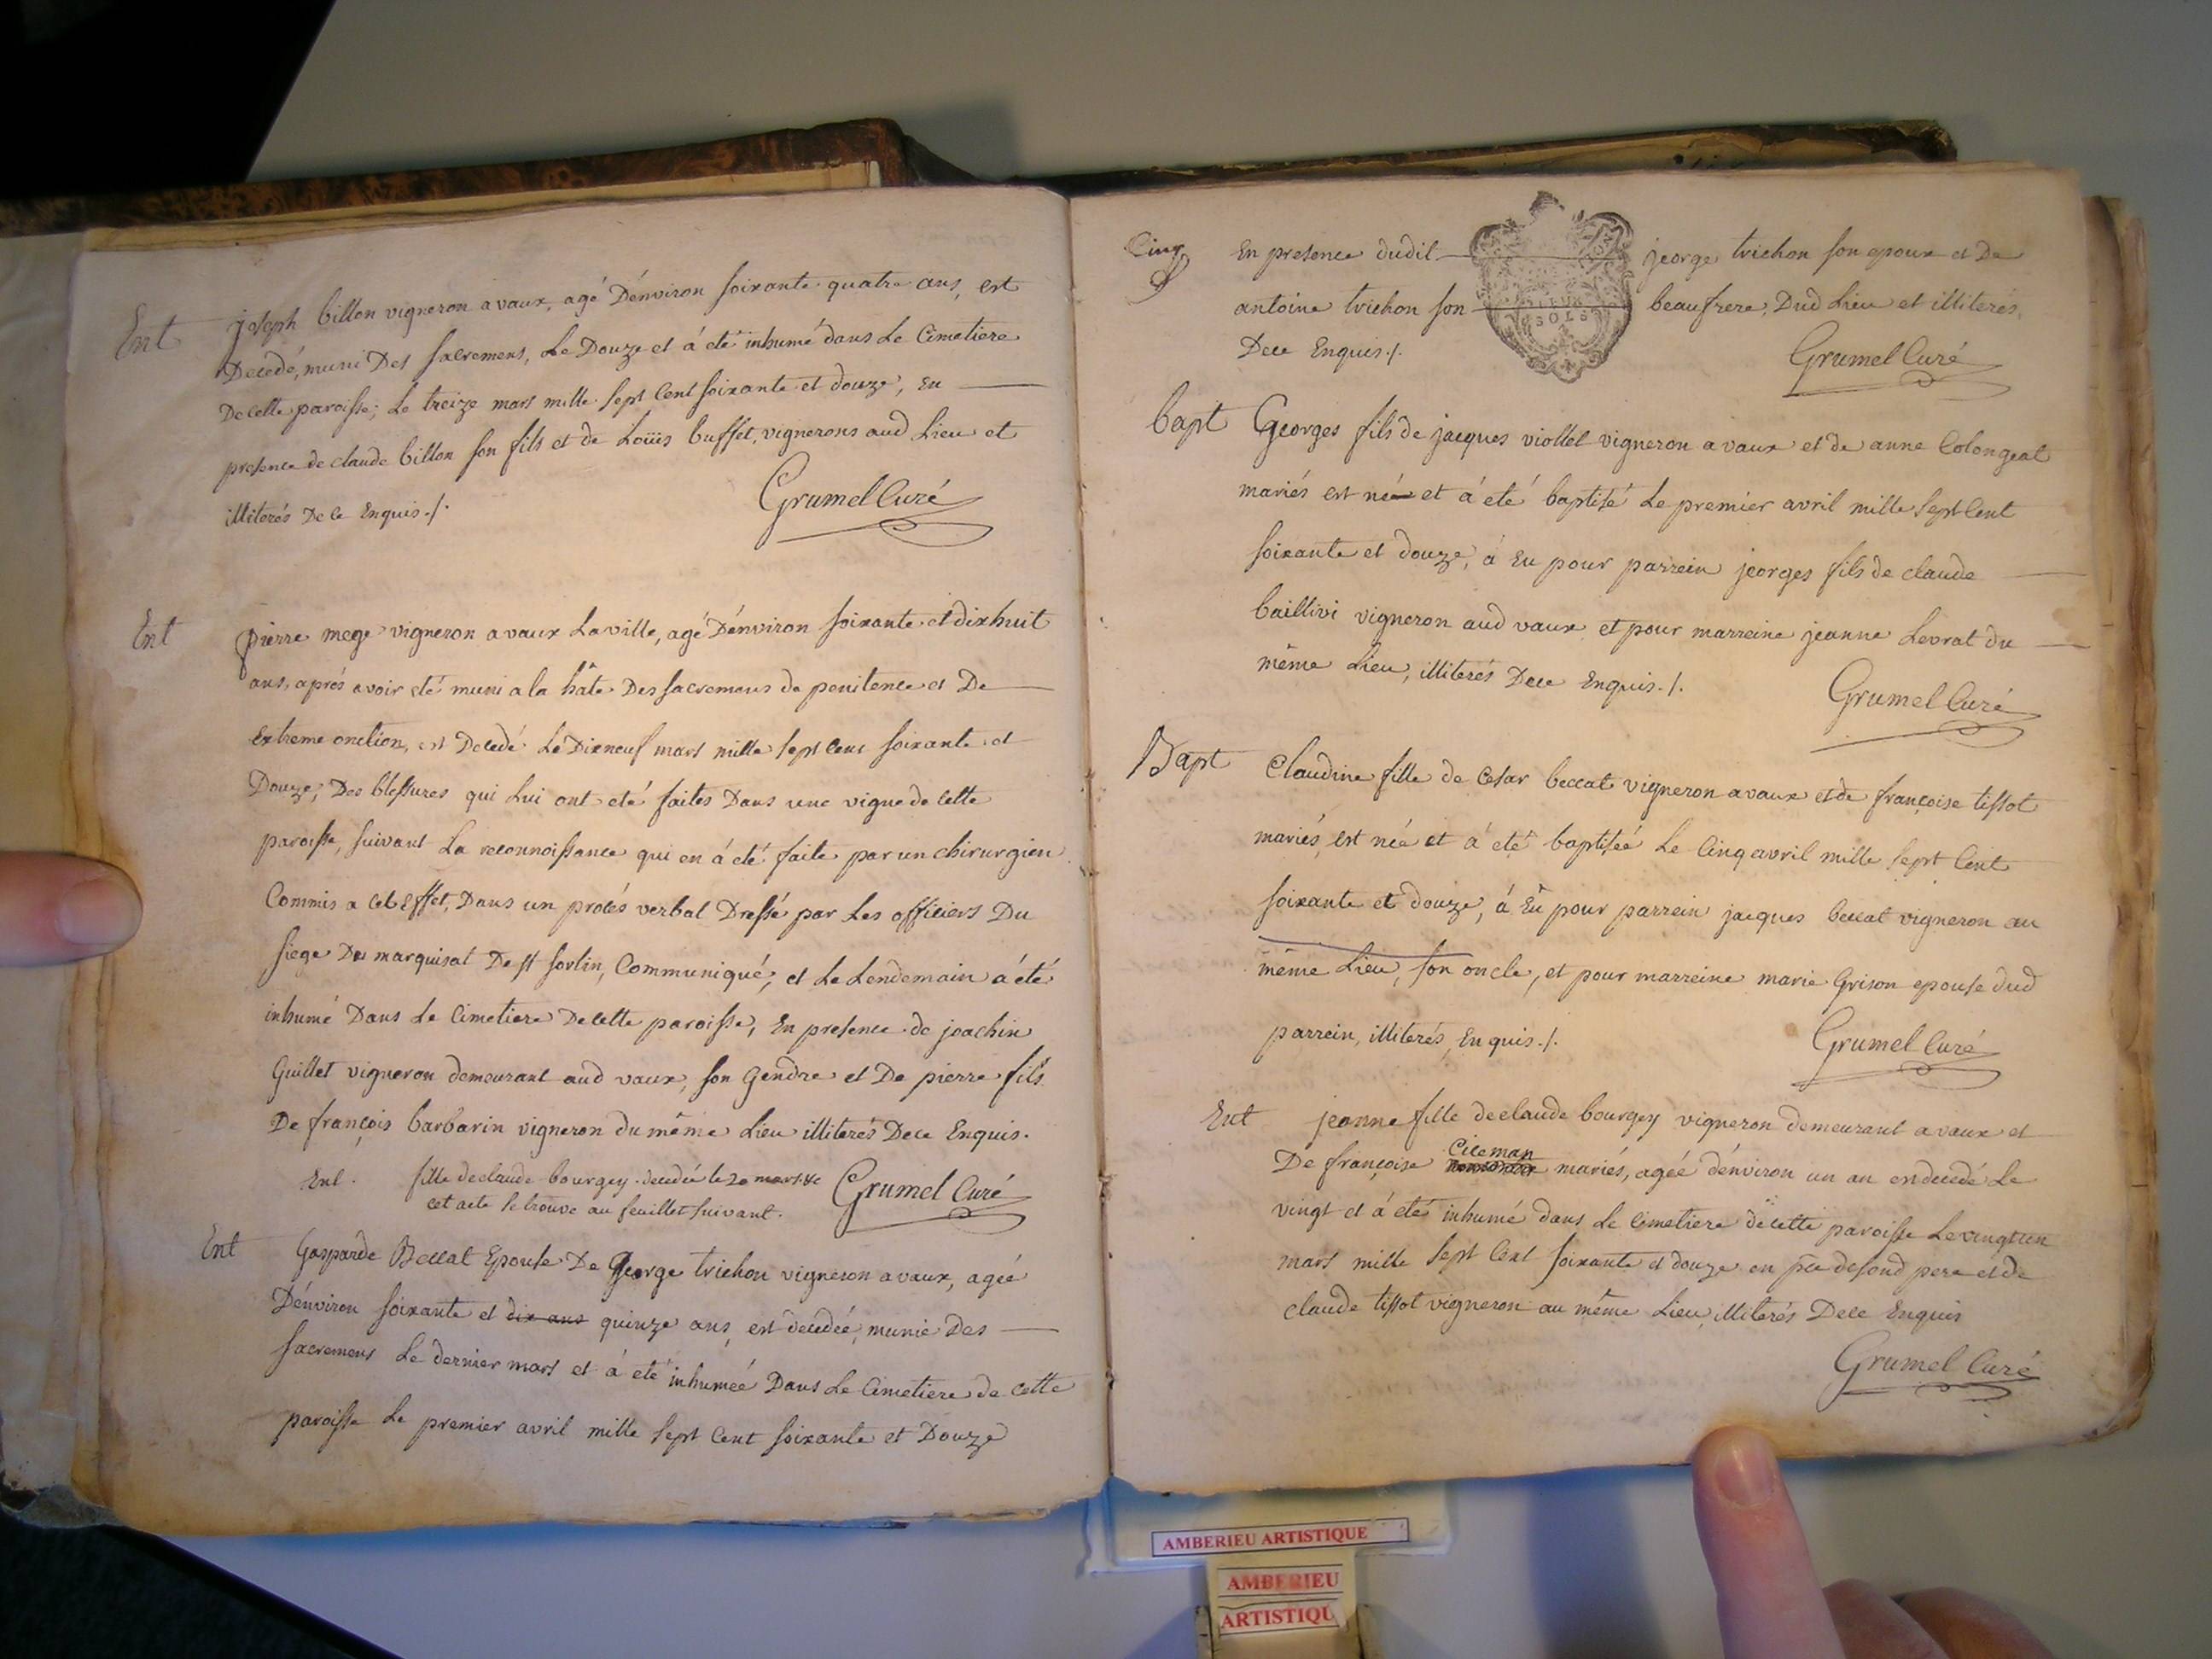 Ent
joseph billon vigneron a vaux, agé D'énviron soixante quatre ans, est
Decedé, muni Des sacremens, Le Douze et á eté inhumé dans Le Cimetiere
De cette paroisse; Le treize mars mille sept Cent soixante et douze, en
presence de claude billon son fils et de Loüis buffet, vignerons aud Lieu et
illiterés De ce Enquis ./.
Grumel Curé
Ent
pierre mege vigneron a vaux La ville, agé D'énviron soixante et dixhuit
ans, aprés avoir eté muni a la hâte Des sacremens de penitence et De
Extreme onction, est Decedé Le Dixneuf mars mille sept cens soixante et
Douze, Des blessures qui Lui ont eté faites Dans une vigne de Cette
paroisse, suivant La reconnoissance qui en á eté faite par un chirurgien
Commis a Cet Effet, Dans un procés verbal Dressé par Les officiers Du
siege Du marquisat De st sorlin, Communiqué; et Le Lendemain á eté
inhumé Dans Le Cimetiere De Cette paroisse, En presence de joachin
Guillet vigneron demeurant aud vaux, son Gendre et De pierre fils
De françois barbarin vigneron du même Lieu illiterés De ce Enquis.
Ent. fille de claude bourgey decedée le 20 mars &c
cet acte se trouve au feuillet suivant.
Grumel Curé
Ent
Gasparde Beccat Epouse De George trichon vigneron a vaux, agée
D'énviron soixante et dix ans quinze ans, est decedée, munie Des
sacremens Le dernier mars et á eté inhumée Dans Le Cimetiere de Cette
paroisse Le premier avril mille sept Cent soixante et Douze
Cinq
En presence dudit jeorge trichon son epoux et De
antoine trichon son beaufrere, Dud Lieu et illiterés,
De ce Enquis ./.
SOLS
Grumel Curé
bapt
Georges fils de jacques viollet vigneron a vaux et de anne Colongeat
mariés est né et á eté baptisé Le premier avril mille sept Cent
soixante et douze, á Eu pour parrein jeorges fils de claude
baillivi vigneron aud vaux et pour marreine jeanne Levrat du
même Lieu, illiterés De ce Enquis ./.
Grumel Curé
Bapt
Claudine fille de Cesar beccat vigneron a vaux et de françoise tissot
mariés, est née et á eté baptisée Le Cinq avril mille sept Cent
soixante et douze, á Eu pour parrein jacques beccat vigneron au
même Lieu, son oncle, et pour marreine marie Grison epouse dud
parrein, illiterés, Enquis ./.
Grumel Curé
Ent
jeanne fille de claude bourgey vigneron demeurant a vaux et
Cileman
De françoise mariés, agée d'énviron un an en decedé Le
vingt et á eté inhumé dans Le Cimetiere de cette paroisse Le vingt un
mars mille sept Cent soixante et douze en pce de sond pere et de
claude tissot vigneron au même Lieu, illiterés De ce Enquis
Grumel Curé
AMBERIEU ARTISTIQUE
AMBERIEU
ARTISTIQU